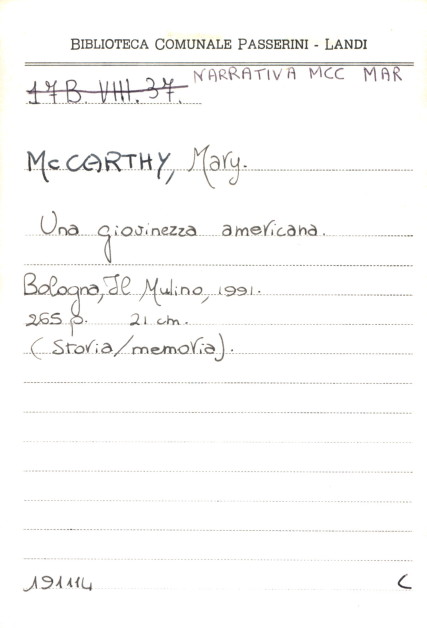 BIBLIOTECA COMUNALE PASSERINI - LANDI
NARRATIVA MCC MAR
17B. VIII. 37.
McCARTHY, Mary.
Una giovinezza americana.
Bologna, Il Mulino, 1991.
265 p. 21 cm.
(Storia/memoria).
191114 C